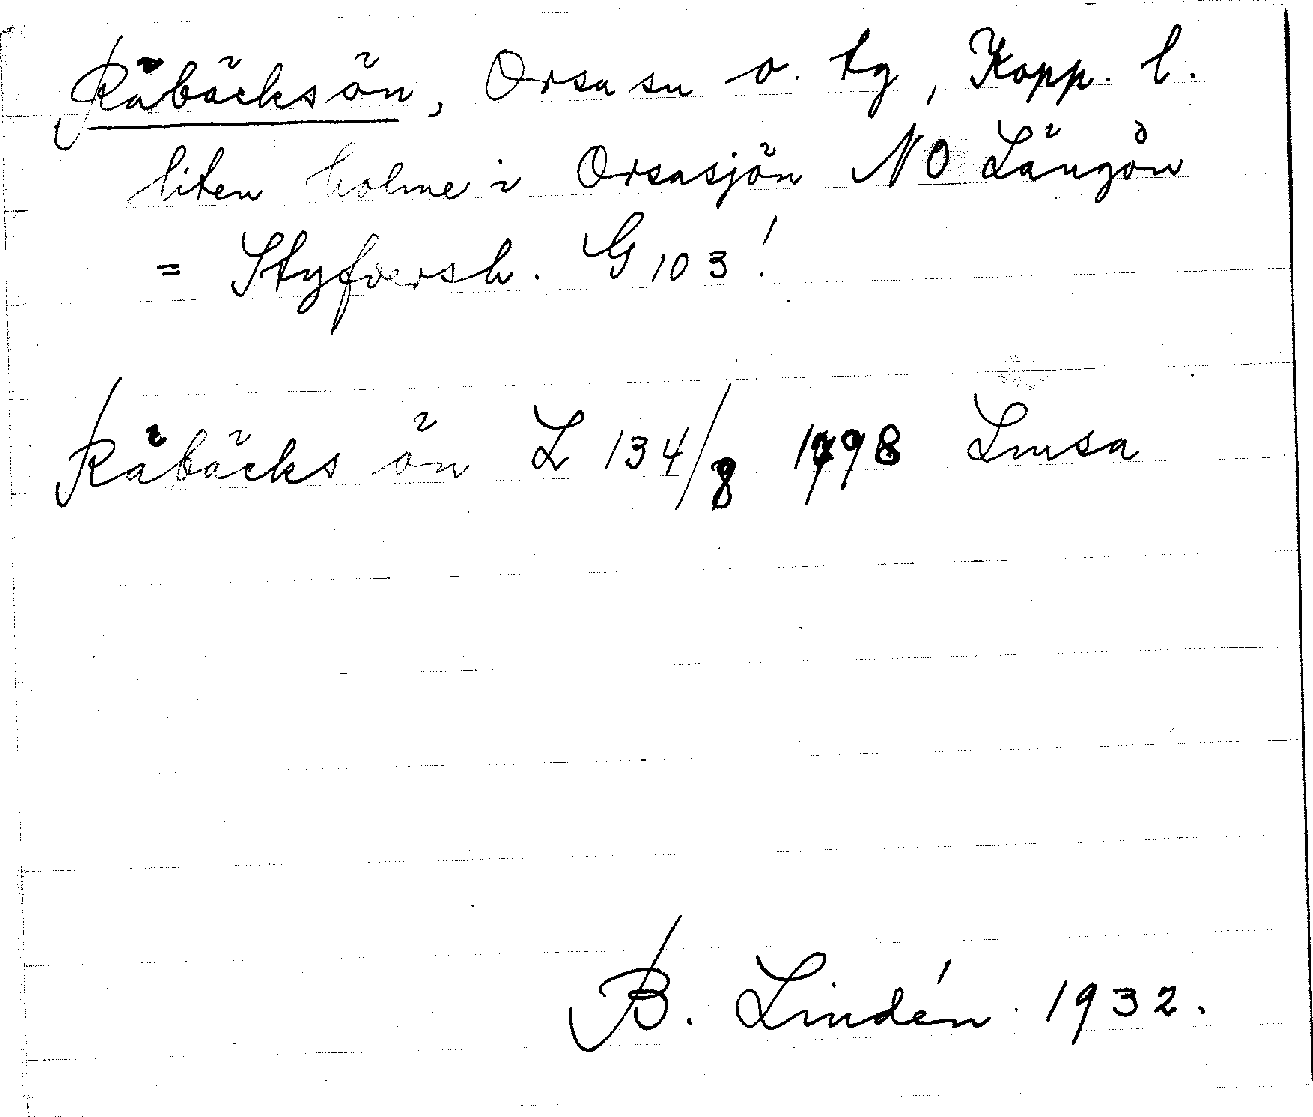 Råbäcksön, Orsa sn o. tg, Kopp. l.
liten holme i Orsasjön NO Långön
= Styfversh. G 103!
Råbäcks ön L 134/8 1798 Lmsa
B. Lindén 1932.